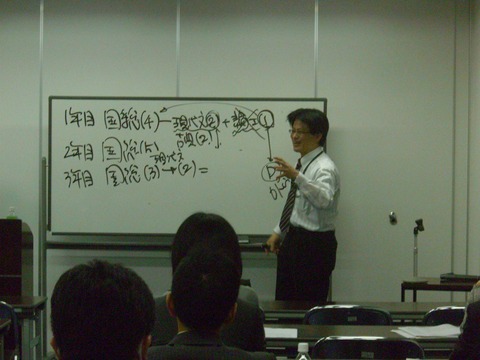 1年目 国総(4)─現代文(2)+ ①
古典(2)
2年目 国総(5) ①
現代文
3年目 国総(3)→(2)=